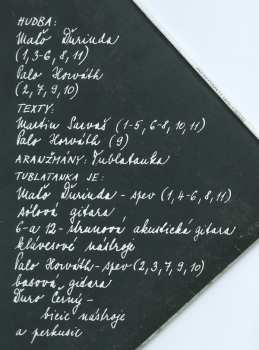 HUDBA:
Maťo Ďurinda
(1,3-6, 8, 11)
Paľo Horváth
(2, 7, 9, 10)
TEXTY:
Martin Sarvaš (1-5, 6-8, 10, 11)
Paľo Horváth (9)
ARANŽMÁNY: Tublatanka
TUBLATANKA JE:
Maťo Ďurinda - spev (1, 4-6, 8, 11)
sólová gitara
6-a 12-strunová akustická gitara
klávesové nástroje
Paľo Horváth-spev (2, 3, 7, 9, 10)
basová gitara
Ďuro Černý -
bicie nástroje
a perkusie